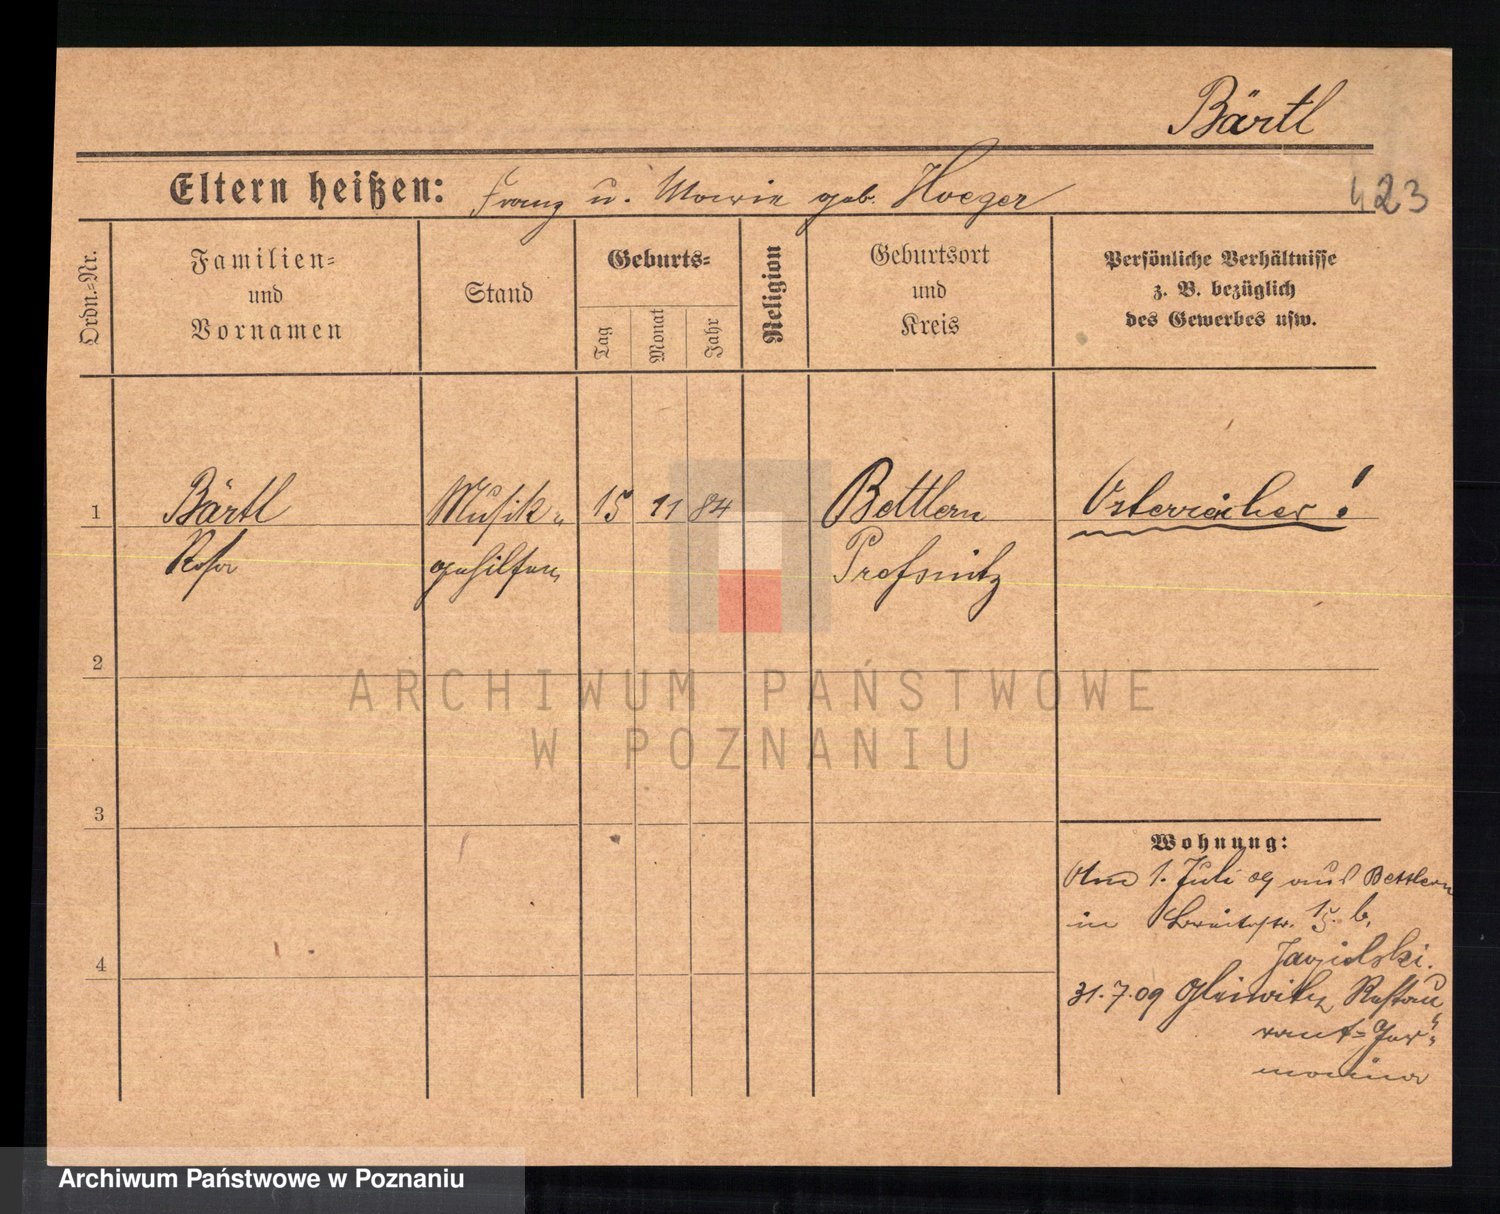 Bärtl
Eltern heißen: Franz u. Marie geb. Hoeger
423
Ordn.-Nr.
Familien-
und
Vornamen
Stand
Geburts-
Tag
Monat
Jahr
Religion
Geburtsort
und
Kreis
Persönliche Verhältnisse
z. B. bezüglich
des Gewerbes usw.
1 Bärtl Musik- 15 11 84 Bettlern Österreicher!
Rosa gehilfin Prossnitz
2
3
4
Wohnung:
1. Juli 09 aus Bettlern
in Breitestr. 15 b.
31.7.09 Gleiwitz Restau
rant
ARCHIWUM PAŃSTWOWE
W POZNANIU
Archiwum Państwowe w Poznaniu